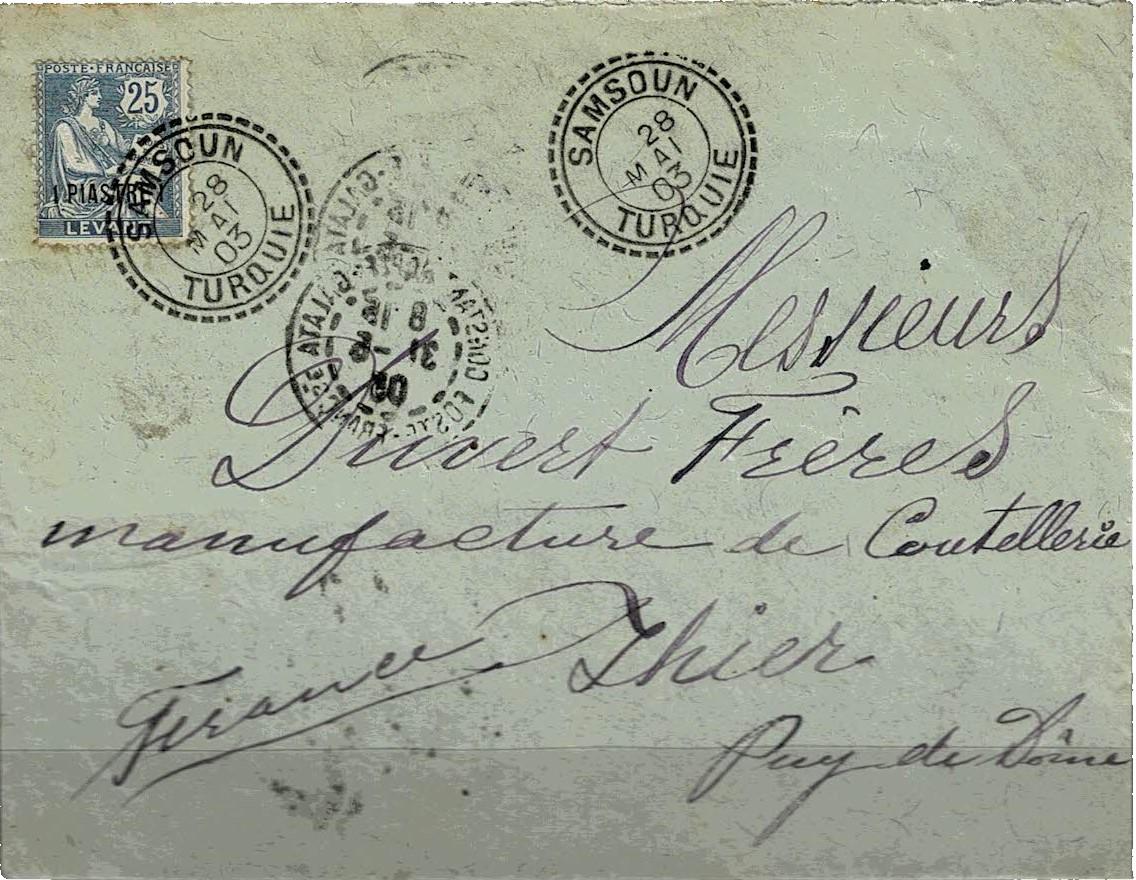 POSTE FRANÇAISE
25
1 PIASTRE 1
LEVANT
SAMSOUN
28
MAI
03
TURQUIE
SAMSOUN
28
MAI
03
TURQUIE
GALATA
GALATA
8
31
03
Messieurs
Duvert Frères
manufacture de Coutellerie
Thier
France
Puy de Dôme